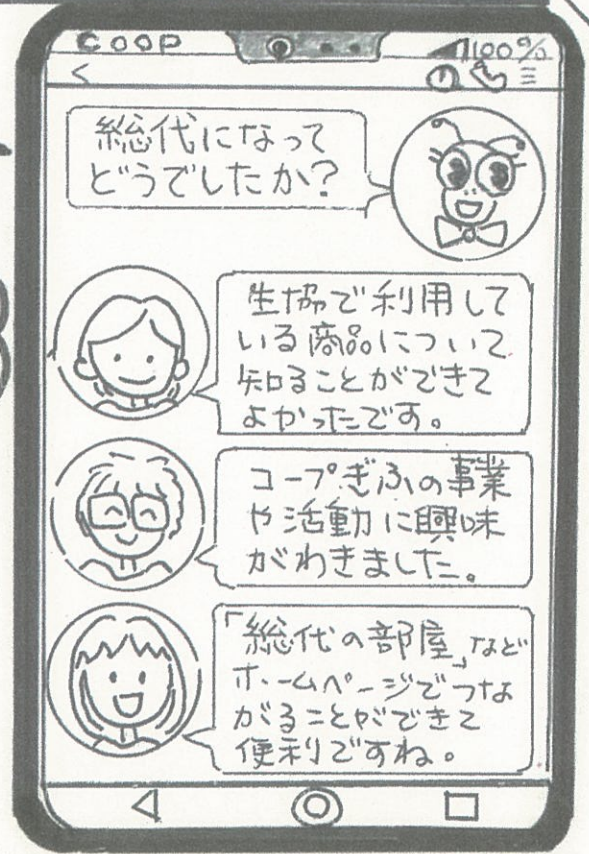 COOP
100%
総代になって
どうでしたか?
生協で利用して
いる商品について
知ることができて
よかったです。
コープぎふの事業
や活動に興味
がわきました。
「総代の部屋」など
ホームページでつな
がることができて
便利ですね。